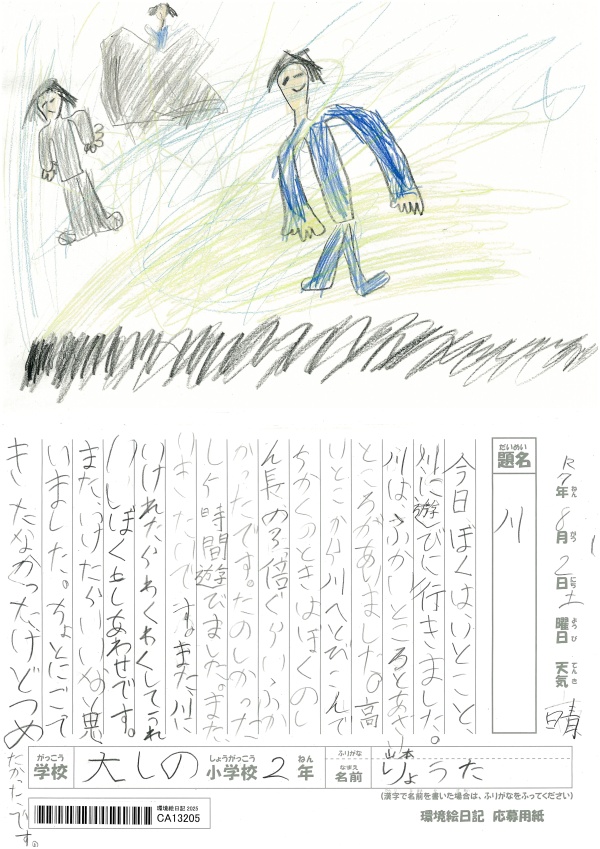 R7年 8月 2日 土曜日 天気 晴
ねん がつ にち ようび てんき
だいめい
題名 川
今日ぼくは、いとこと、
川に遊びに行きました。
川は、ふかいところとあさい
ところがありました。高
いとこから川へとびこんで
ふかくのときはぼくのし
ん長の3倍ぐらいふか
かったです。たのしかった
し4時間遊びました。また
いきたいです。また川に
いけれたからわくわくしてうれ
しい。ぼくもしあわせです。
またいけたらいいなと思
いました。ちょとにごて
きたなかったけどつめ
たかったです。
がっこう しょうがっこう ねん
学校 大しの 小学校 2 年
ふりがな 山本
なまえ
名前 りょうた
(漢字で名前を書いた場合は、ふりがなをふってください)
環境絵日記 2025
CA13205
環境絵日記 応募用紙